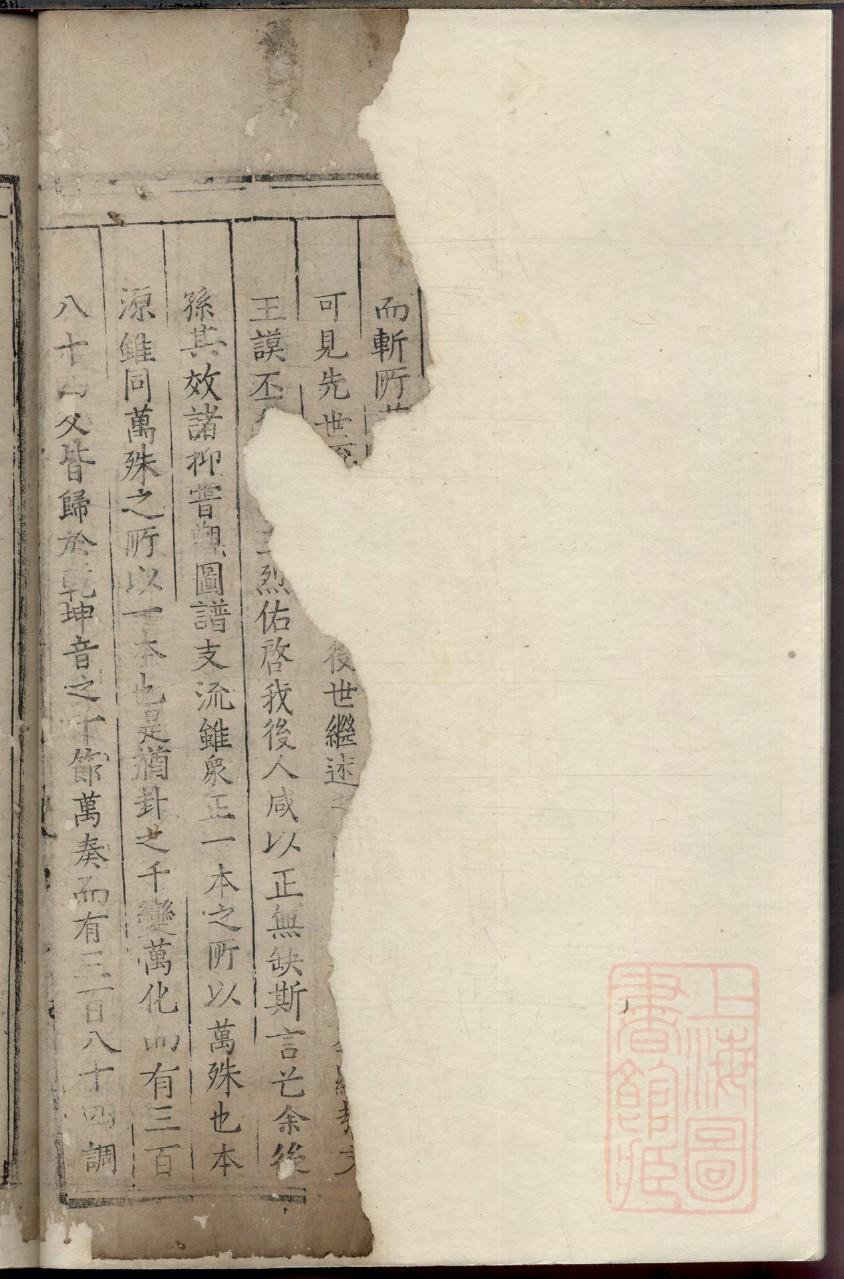 而斬所
可見先世
後世繼述
王謨丕
烈佑啓我後人咸以正無缺斯言也余後
孫其效諸抑嘗觀圖譜支流雖衆正一本之所以萬殊也本
源雖同萬殊之所以一本也是猶卦之千變萬化而有三百
八十四爻皆歸於乾坤音之千節萬奏而有三百八十四調
上海圖
書館藏